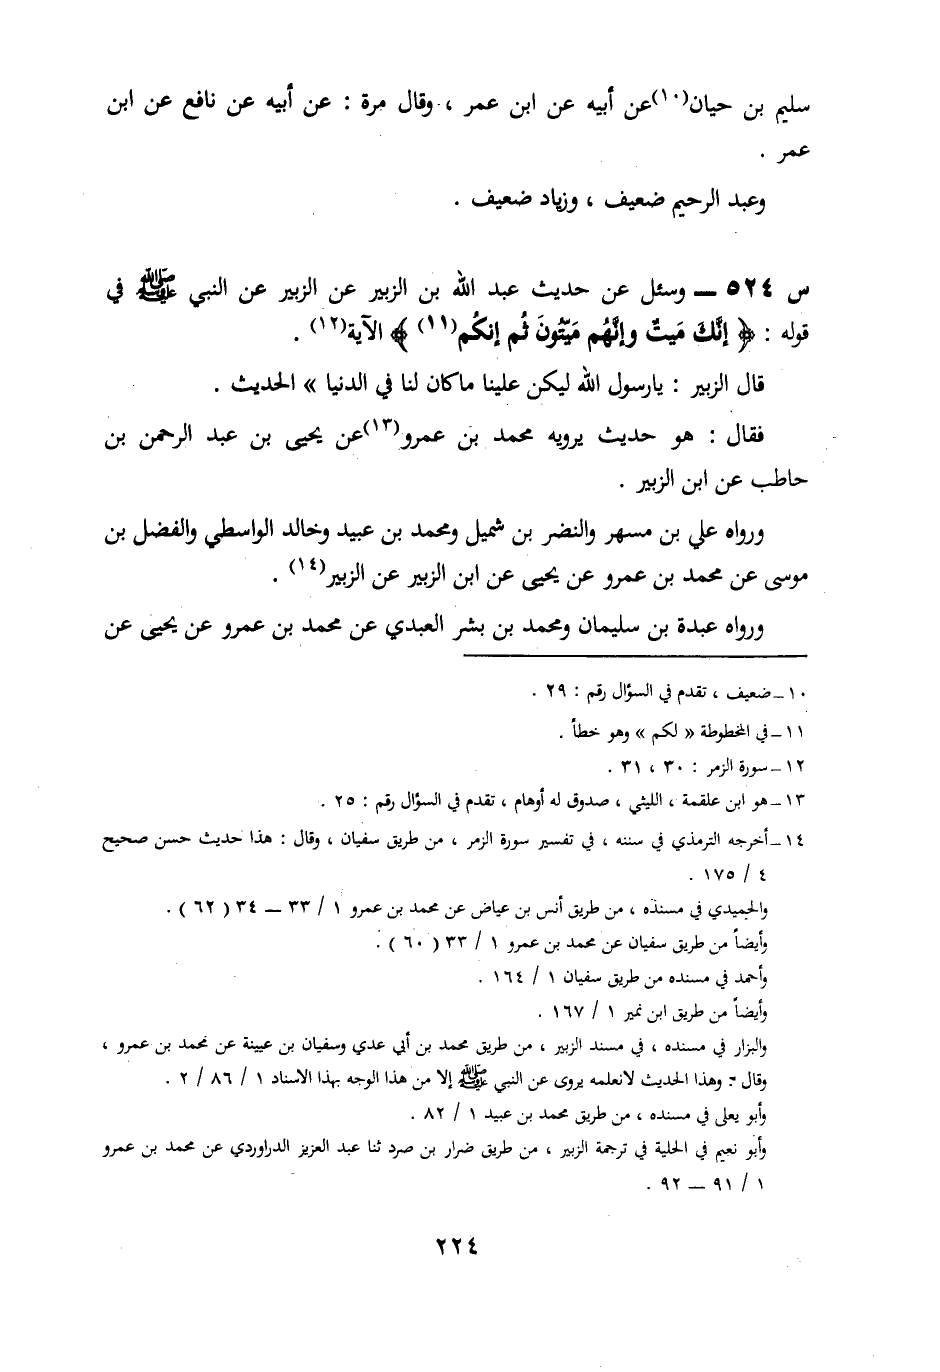 سليم بن حيان(١٠)عن أبيه عن ابن عمر ، وقال مرة : عن أبيه عن نافع عن ابن
عمر .
وعبد الرحيم ضعيف ، وزياد ضعيف .
س ٥٢٤ ـ وسئل عن حديث عبد الله بن الزبير عن الزبير عن النبي ﷺ في
قوله : ﴿ إنَّكَ مَيتٌ وإنَّهُم مَيّتُونَ ثُم إنكُم(١١) ﴾ الآية(١٢) .
قال الزبير : يارسول الله ليكن علينا ماكان لنا في الدنيا » الحديث .
فقال : هو حديث يرويه محمد بن عمرو(١٣)عن يحيى بن عبد الرحمن بن
حاطب عن ابن الزبير .
ورواه علي بن مسهر والنضر بن شميل ومحمد بن عبيد وخالد الواسطي والفضل بن
موسى عن محمد بن عمرو عن يحيى عن ابن الزبير عن الزبير(١٤) .
ورواه عبدة بن سليمان ومحمد بن بشر العبدي عن محمد بن عمرو عن يحيى عن
١٠ ـ ضعيف ، تقدم في السؤال رقم : ٢٩ .
١١ ـ في المخطوطة « لكم » وهو خطأ .
١٢ ـ سورة الزمر : ٣٠ ، ٣١ .
١٣ ـ هو ابن علقمة ، الليثي ، صدوق له أوهام ، تقدم في السؤال رقم : ٢٥ .
١٤ ـ أخرجه الترمذي في سننه ، في تفسير سورة الزمر ، من طريق سفيان ، وقال : هذا حديث حسن صحيح
٤ / ١٧٥ .
والحميدي في مسنده ، من طريق أنس بن عياض عن محمد بن عمرو ١ / ٣٣ ـ ٣٤ ( ٦٢ ) .
وأيضاً من طريق سفيان عن محمد بن عمرو ١ / ٣٣ ( ٦٠ ) .
وأحمد في مسنده من طريق سفيان ١ / ١٦٤ .
وأيضاً من طريق ابن نمير ١ / ١٦٧ .
والبزار في مسنده ، في مسند الزبير ، من طريق محمد بن أبي عدي وسفيان بن عيينة عن محمد بن عمرو ،
وقال : وهذا الحديث لانعلمه يروى عن النبي ﷺ إلا من هذا الوجه بهذا الاسناد ١ / ٨٦ / ٢ .
وأبو يعلى في مسنده ، من طريق محمد بن عبيد ١ / ٨٢ .
وأبو نعيم في الحلية في ترجمة الزبير ، من طريق ضرار بن صرد ثنا عبد العزيز الدراوردي عن محمد بن عمرو
١ / ٩١ ـ ٩٢ .
٢٢٤